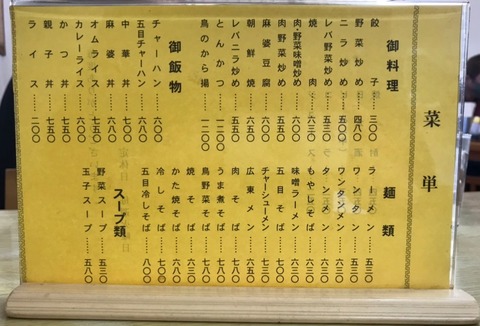 菜単
御料理
餃子……三〇〇
野菜炒め……四八〇
ニラ炒め……五〇〇
レバ野菜炒め…五五〇
焼肉……六三〇
肉野菜味噌炒め…六〇〇
肉野菜炒め……五五〇
麻婆豆腐……六〇〇
朝鮮焼……六五〇
レバニラ炒め…五五〇
とんかつ…一二〇〇
鳥のから揚…一二〇〇
御飯物
チャーハン……六〇〇
五目チャーハン…六八〇
中華丼……六八〇
麻婆丼……六八〇
オムライス……七五〇
カレーライス……六〇〇
かつ丼……七五〇
親子丼……六五〇
ライス……二〇〇
麺類
ラーメン……五三〇
ワンタン……五三〇
ワンタンメン……六三〇
タンメン……六三〇
もやしそば……六三〇
味噌ラーメン……六三〇
五目そば……七〇〇
チャーシューメン…七三〇
広東メン……六五〇
肉そば……七八〇
うま煮そば……七八〇
鳥野菜そば……七八〇
焼そば……六三〇
かた焼そば……六八〇
冷しそば……七八〇
五目冷しそば……八〇〇
スープ類
野菜スープ……五三〇
玉子スープ……五八〇